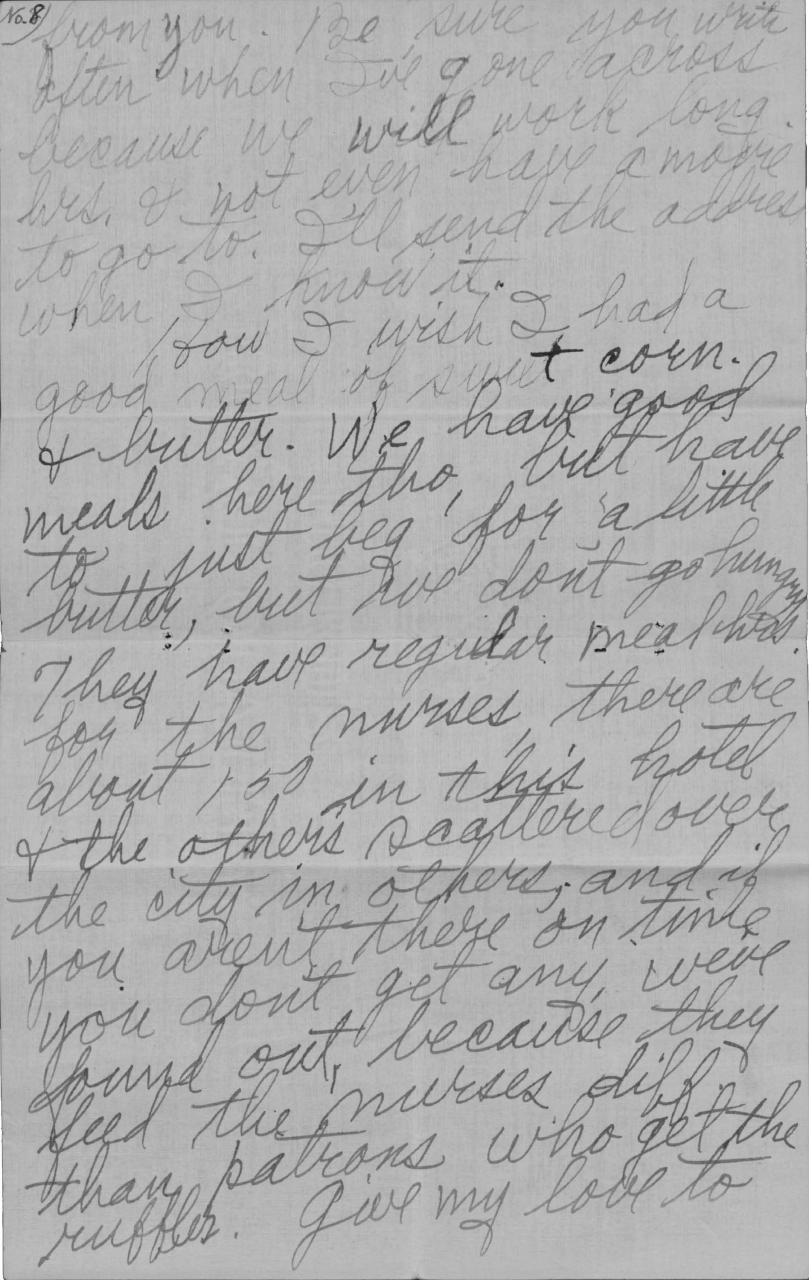 No. 8
from you. Be sure you write
often when I've gone across
because we will work long
hrs. & not even have a movie
to go to. I'll send the address
when I know it.
How I wish I had a
good meal of sweet corn.
& butter. We have good
meals here tho, but have
to just beg for a little
butter, but we don't go hungry
They have regular meal hrs.
for the nurses, there are
about 150 in this hotel
& the others scattered over
the city in others, and if
you aren't there on time
you don't get any, we've
found out, because they
feed the nurses diff.
than patrons who get the
ruffles. Give my love to